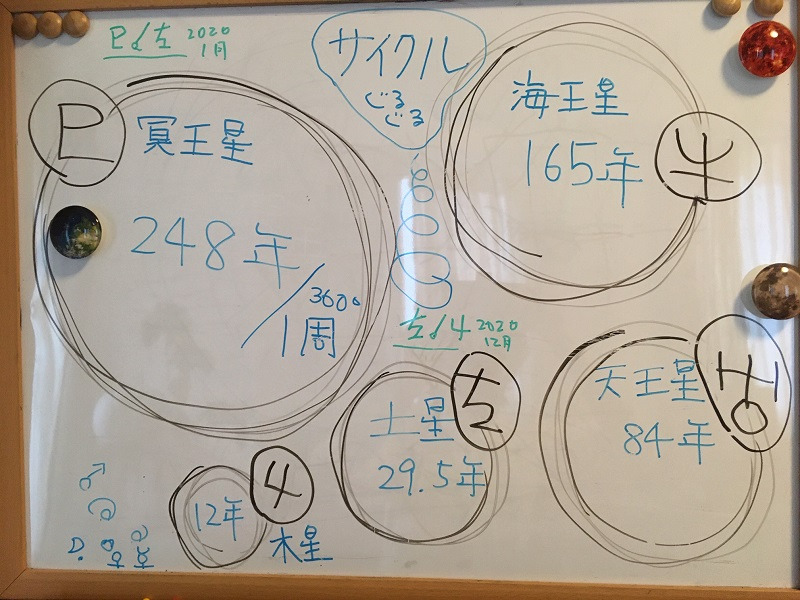 P☌♄ 2020
1月
サイクル
ぐる
ぐる
♇
冥王星
248年/360°
1周
海王星
165年
♆
♄☌♃ 2020
12月
土星
29.5年
♄
天王星
84年
♅
12年
♃
木星
♂
☉
☽ ♀ ☿